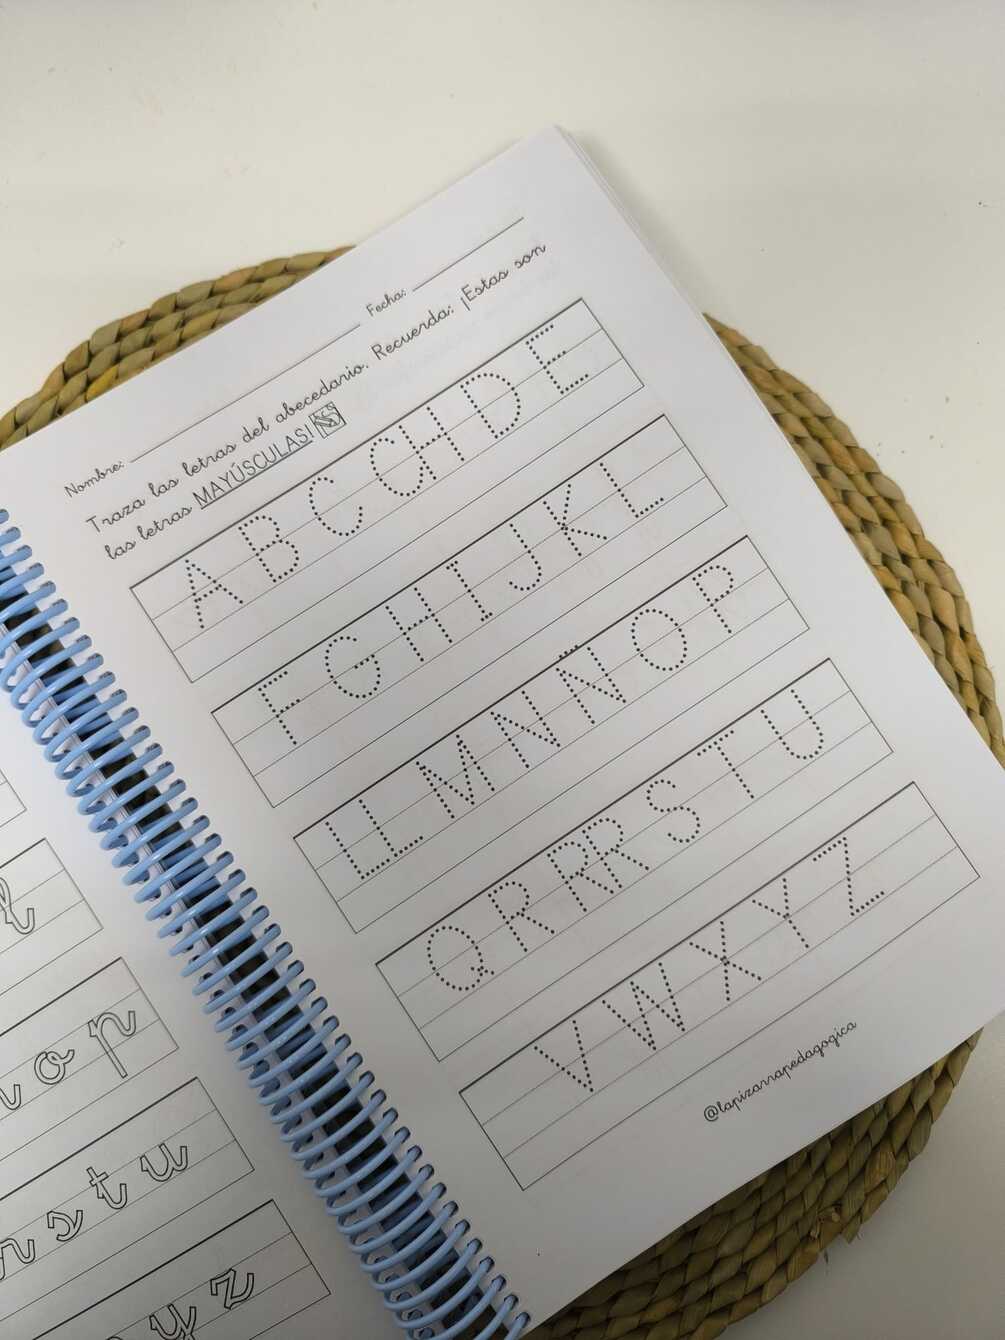 Nombre: Fecha:
Traza las letras del abecedario. Recuerda: ¡Estas son
las letras MAYÚSCULAS!
A B C CH D E
F G H I J K L
LL M N Ñ O P
Q R RR S T U
V W X Y Z
@lapizarrapedagogica
l
o p
r s t u
y z